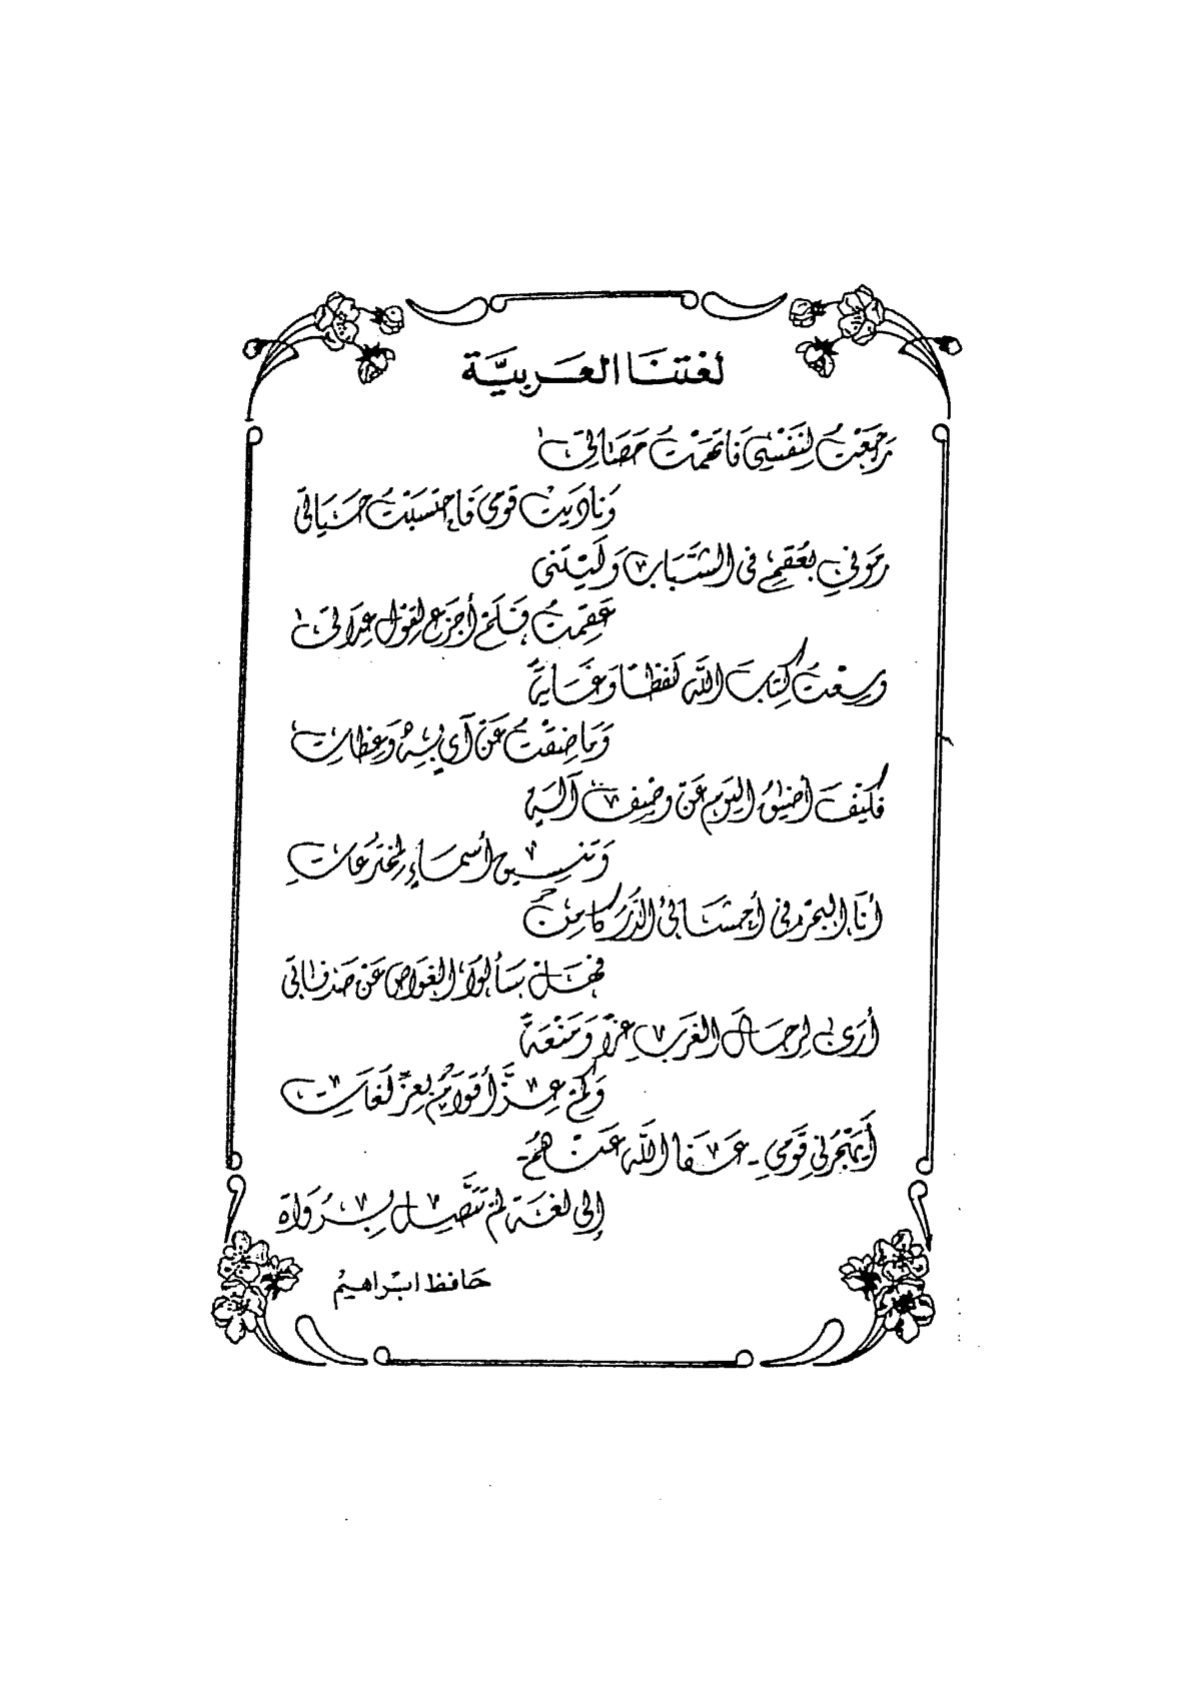 لغتنا العربيَّة
رَجَعْتُ لِنَفْسِي فَاتَّهَمْتُ حَصَاتِي
وَنَادَيْتُ قَوْمِي فَاحْتَسَبْتُ حَيَاتِي
رَمَوْنِي بِعُقْمٍ فِي الشَّبَابِ وَلَيْتَنِي
عَقِمْتُ فَلَمْ أَجْزَعْ لِقَوْلِ عِدَاتِي
وَسِعْتُ كِتَابَ اللَّهِ لَفْظًا وَغَايَةً
وَمَا ضِقْتُ عَنْ آيٍ بِهِ وَعِظَاتِ
فَكَيْفَ أَضِيقُ الْيَوْمَ عَنْ وَصْفِ آلَةٍ
وَتَنْسِيقِ أَسْمَاءٍ لِمُخْتَرَعَاتِ
أَنَا الْبَحْرُ فِي أَحْشَائِهِ الدُّرُّ كَامِنٌ
فَهَلْ سَأَلُوا الْغَوَّاصَ عَنْ صَدَفَاتِي
أَرَى لِرِجَالِ الْغَرْبِ عِزًّا وَمَنْعَةً
وَكَمْ عَزَّ أَقْوَامٌ بِعِزِّ لُغَاتِ
أَيَهْجُرُنِي قَوْمِي - عَفَا اللَّهُ عَنْهُمُ -
إِلَى لُغَةٍ لَمْ تَتَّصِلْ بِرُوَاةِ
حَافظ ابْراهيمْ